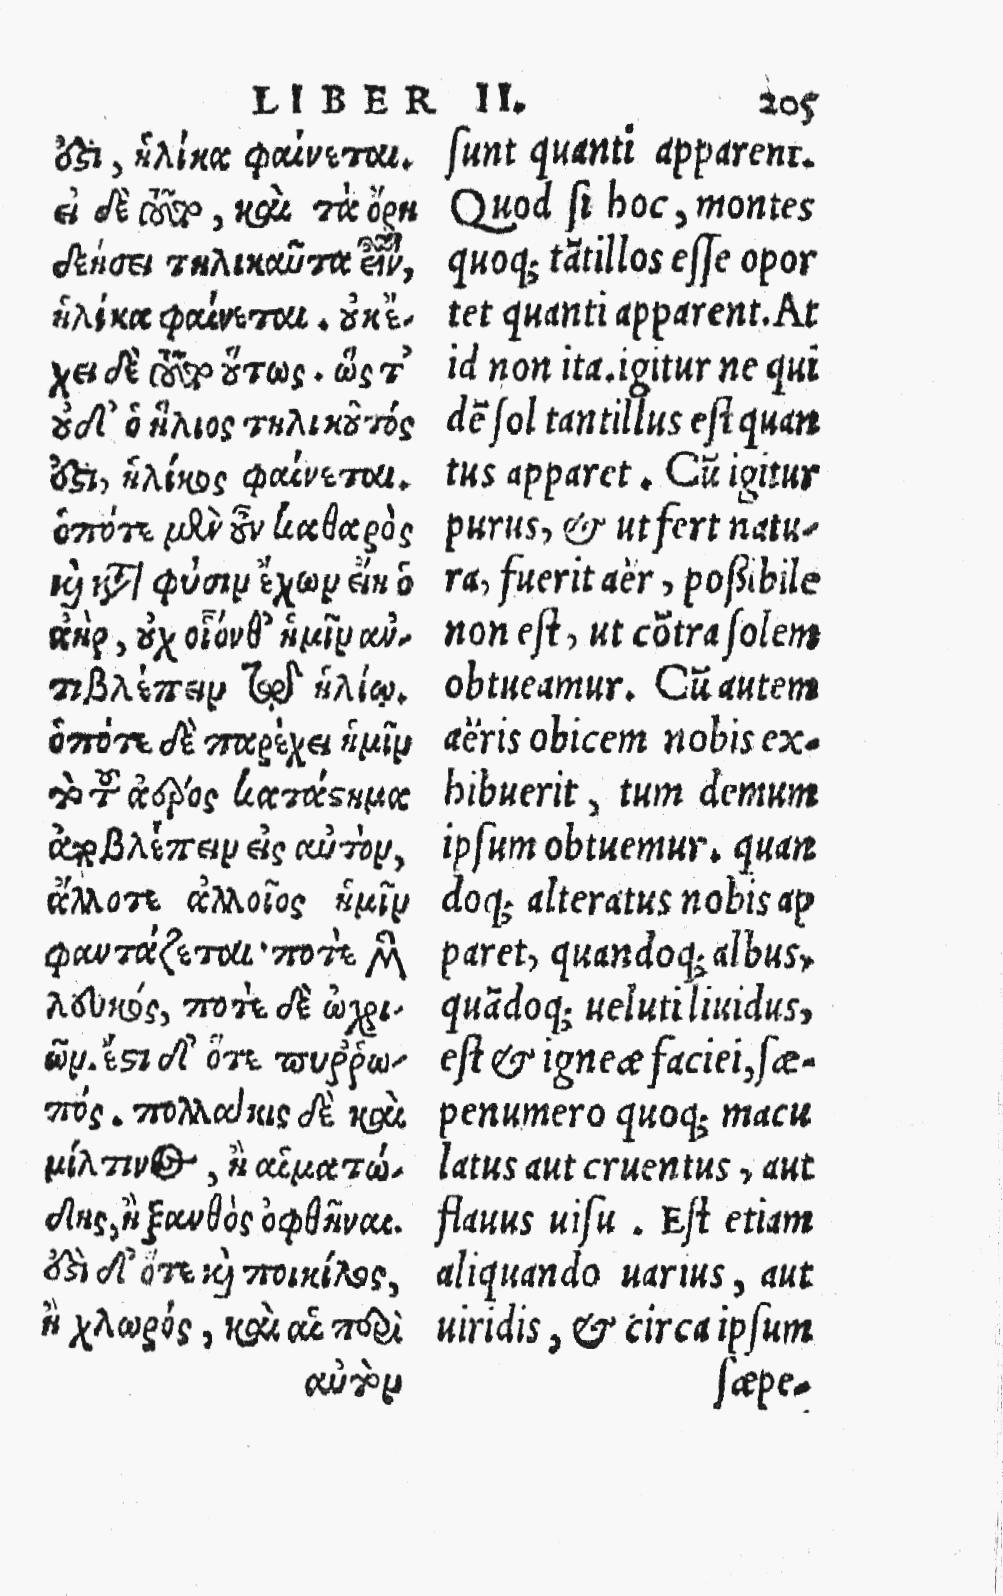 LIBER II. 205
ὅτι, ἡλίκα φαίνεται.
εἰ δὲ τοῦτο, καὶ τὰ ὄρη
δεήσει τηλικαῦτα εἶναι,
ἡλίκα φαίνεται. οὐκ ἔ-
χει δὲ τοῦτο οὕτως. ὥστ'
οὐδ' ὁ ἥλιος τηλικοῦτός
ὅτι, ἡλίκος φαίνεται.
ὁπότε μὲν οὖν καθαρὸς
καὶ κατὰ φύσιν ἔχων εἴη ὁ
ἀὴρ, οὐχ οἷόνθ' ἡμῖν ἀν-
τιβλέπειν τῷ ἡλίῳ.
ὁπότε δὲ παρέχει ἡμῖν
τὸ τοῦ ἀέρος κατάστημα
βλέπειν εἰς αὐτὸν,
ἄλλοτε ἀλλοῖος ἡμῖν
φαντάζεται· ποτὲ μὲν
λευκός, ποτὲ δὲ ὠχρι-
ῶν. ἔστι δ' ὅτε πυῤῥω-
πός. πολλάκις δὲ καὶ
μίλτινος, ἢ αἱματώ-
δης, ἢ ξανθὸς ὀφθῆναι.
ἔστι δ' ὅτε καὶ ποικίλος,
ἢ χλωρός, καὶ αἱ περὶ
αὐτὸν
sunt quanti apparent.
Quod si hoc, montes
quoq; tātillos esse opor
tet quanti apparent. At
id non ita. igitur ne qui
dē sol tantillus est quan
tus apparet. Cū igitur
purus, & ut fert natu-
ra, fuerit aër, poßibile
non est, ut cōtra solem
obtueamur. Cū autem
aëris obicem nobis ex-
hibuerit, tum demum
ipsum obtuemur. quan
doq; alteratus nobis ap
paret, quandoq; albus,
quādoq; ueluti liuidus,
est & igneæ faciei, sæ-
penumero quoq; macu
latus aut cruentus, aut
flauus uisu. Est etiam
aliquando uarius, aut
uiridis, & circa ipsum
sæpe-